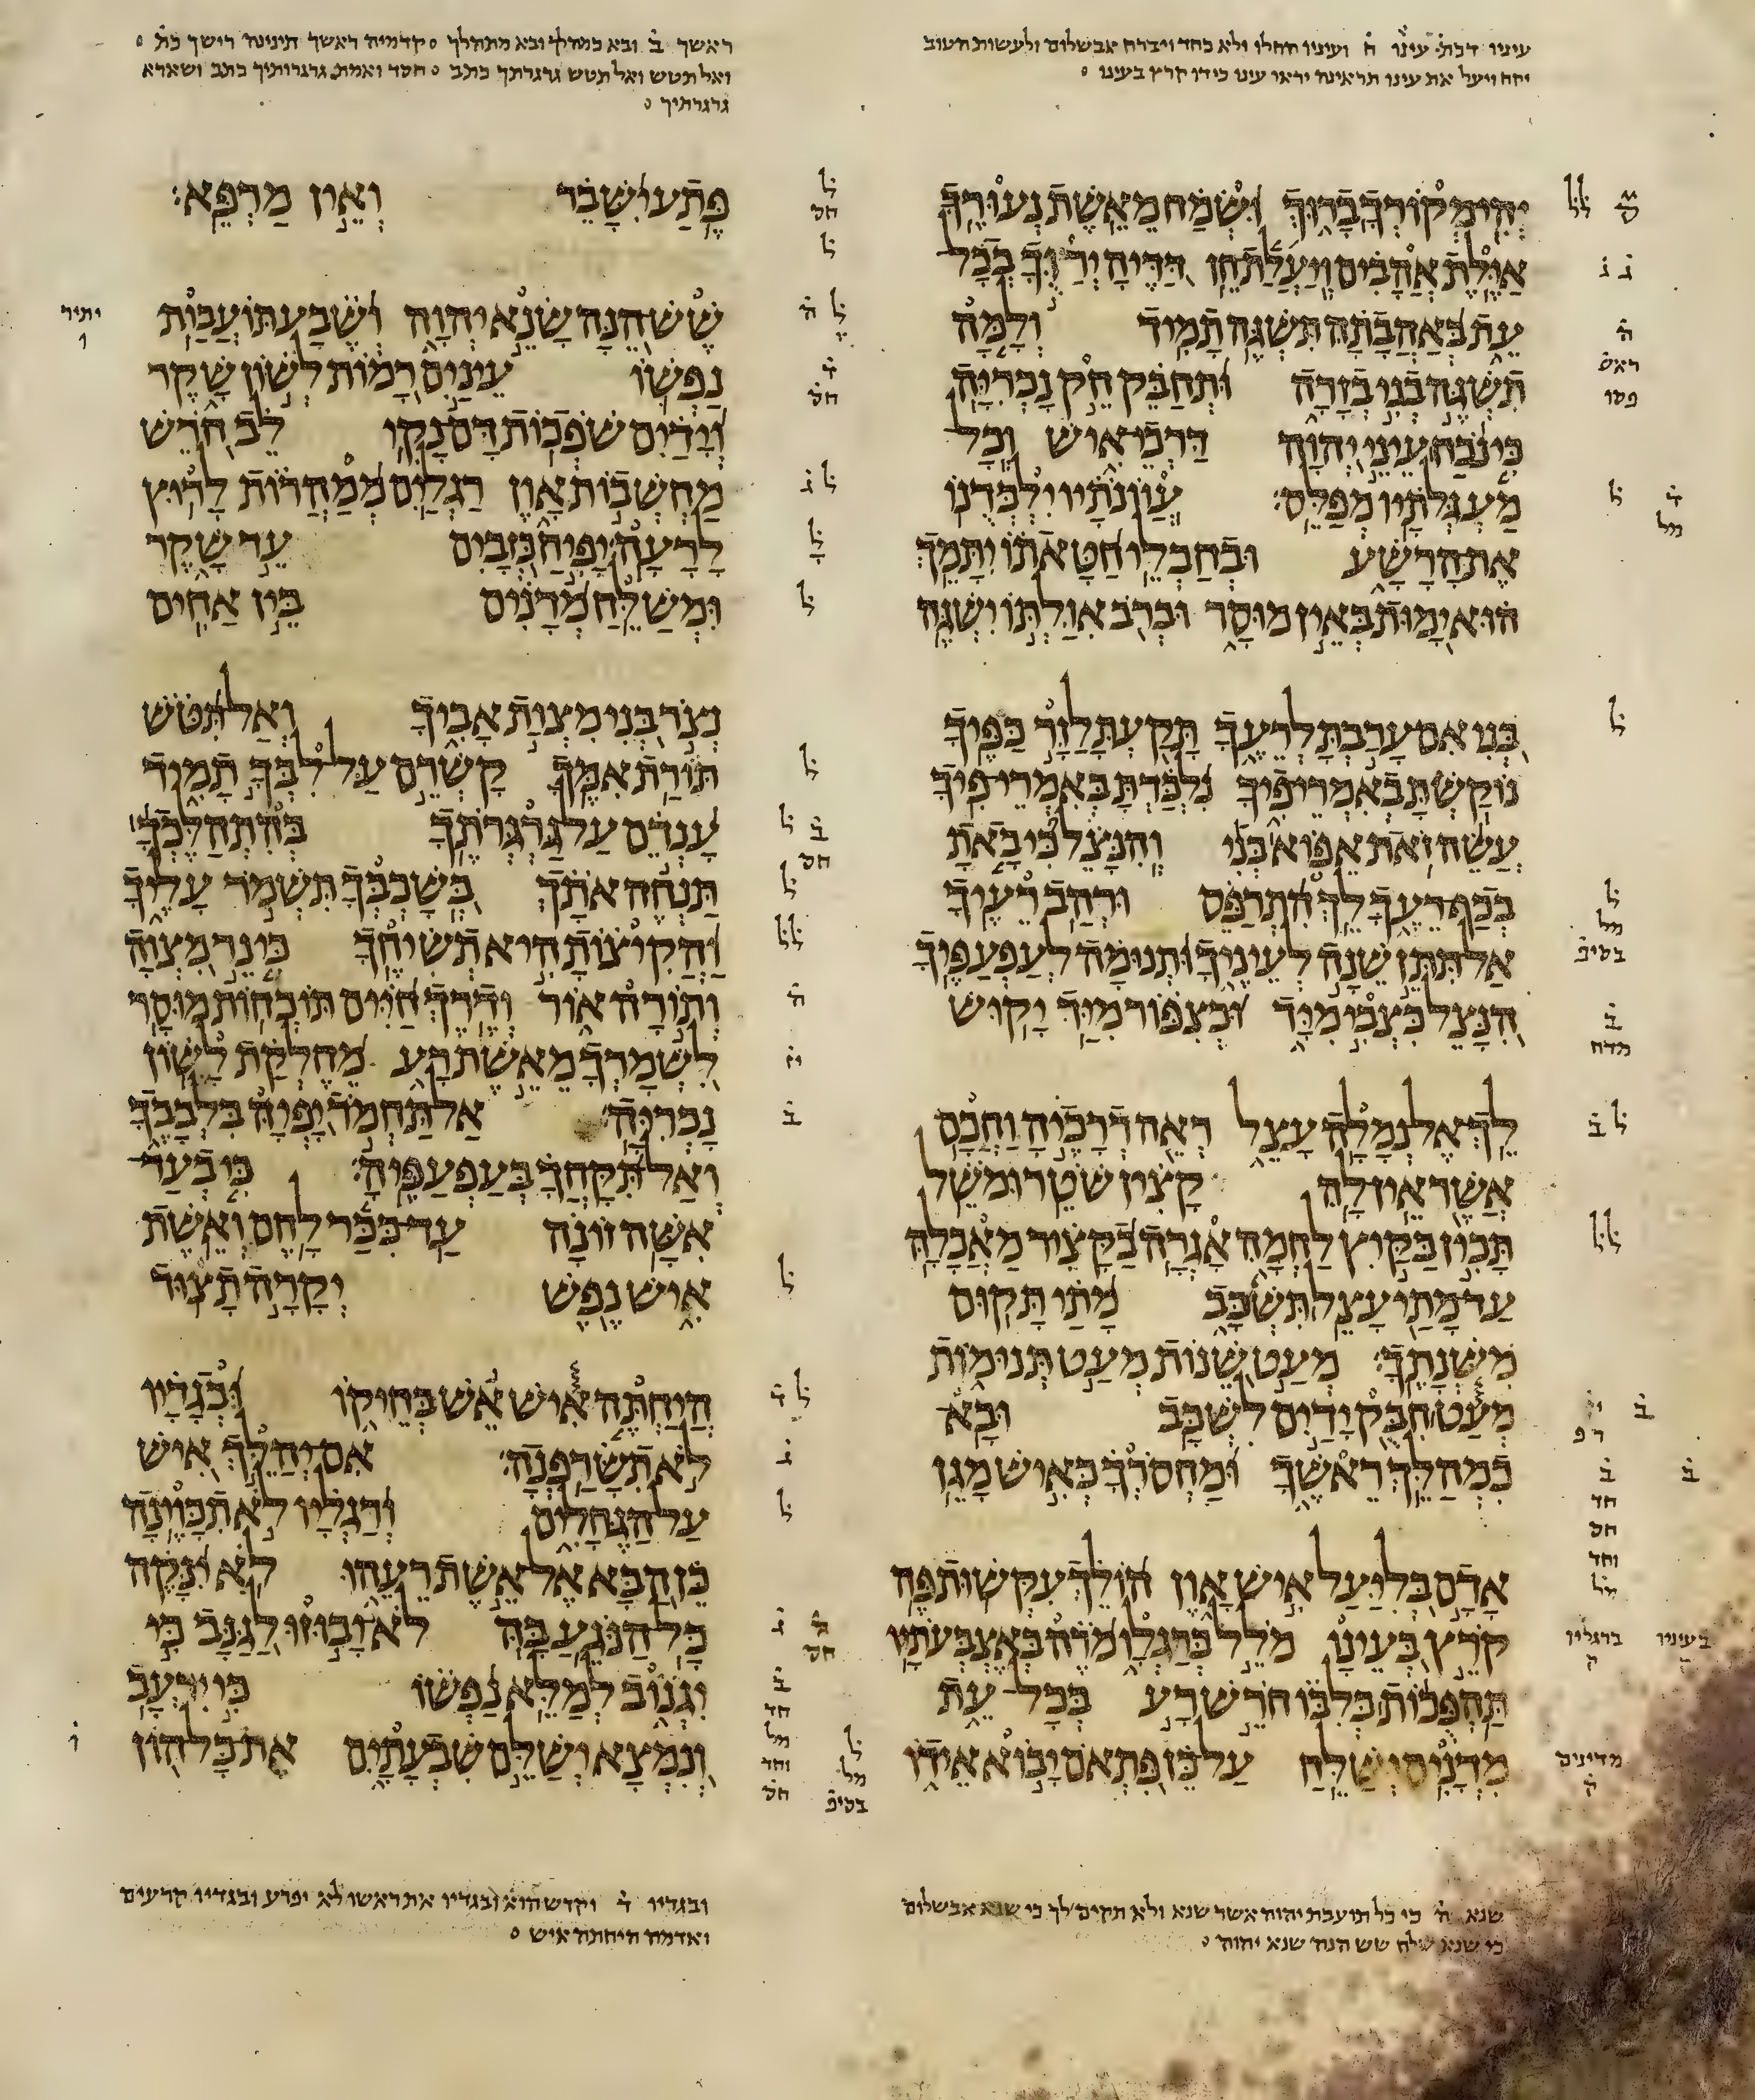 עיניו דכת̇ עינו ח̇ ועינו החלו ולא כחד ויברח אבשלום ולעשות הטוב
ויעל את עינו תראינה יראו עינו כידו קרץ בעינו ○
יְהִי מְקוֹרְךָ בָרוּךְ וּשְׂמַח מֵאֵשֶׁת נְעוּרֶךָ
אַיֶּלֶת אֲהָבִים וְיַעֲלַת חֵן דַּדֶּיהָ יְרַוֻּךָ בְכָל
עֵת בְּאַהֲבָתָהּ תִּשְׁגֶּה תָמִיד וְלָמָּה
תִשְׁגֶּה בְנִי בְזָרָה וּתְחַבֵּק חֵק נָכְרִיָּה
כִּי נֹכַח עֵינֵי יְהוָה דַּרְכֵי אִישׁ וְכָל
מַעְגְּלֹתָיו מְפַלֵּס׃ עֲוֺנֹתָיו יִלְכְּדֻנוֹ
אֶת הָרָשָׁע וּבְחַבְלֵי חַטָּאתוֹ יִתָּמֵךְ
הוּא יָמוּת בְּאֵין מוּסָר וּבְרֹב אִוַּלְתּוֹ יִשְׁגֶּה
בְּנִי אִם עָרַבְתָּ לְרֵעֶךָ תָּקַעְתָּ לַזָּר כַּפֶּיךָ
נוֹקַשְׁתָּ בְאִמְרֵי פִיךָ נִלְכַּדְתָּ בְּאִמְרֵי פִיךָ
עֲשֵׂה זֹאת אֵפוֹא בְּנִי וְהִנָּצֵל כִּי בָאתָ
בְכַף רֵעֶךָ לֵךְ הִתְרַפֵּס וּרְהַב רֵעֶיךָ
אַל תִּתֵּן שֵׁנָה לְעֵינֶיךָ וּתְנוּמָה לְעַפְעַפֶּיךָ
הִנָּצֵל כִּצְבִי מִיָּד וּכְצִפּוֹר מִיַּד יָקוּשׁ
לֵךְ אֶל נְמָלָה עָצֵל רְאֵה דְרָכֶיהָ וַחֲכָם
אֲשֶׁר אֵין לָהּ קָצִין שֹׁטֵר וּמֹשֵׁל
תָּכִין בַּקַּיִץ לַחְמָהּ אָגְרָה בַקָּצִיר מַאֲכָלָהּ
עַד מָתַי עָצֵל תִּשְׁכָּב מָתַי תָּקוּם
מִשְּׁנָתֶךָ׃ מְעַט שֵׁנוֹת מְעַט תְּנוּמוֹת
מְעַט חִבֻּק יָדַיִם לִשְׁכָּב וּבָא
כִמְהַלֵּךְ רֵאשֶׁךָ וּמַחְסֹרְךָ כְּאִישׁ מָגֵן
אָדָם בְּלִיַּעַל אִישׁ אָוֶן הוֹלֵךְ עִקְּשׁוּת פֶּה
קֹרֵץ בְּעֵינָו מֹלֵל בְּרַגְלָו מֹרֶה בְּאֶצְבְּעֹתָיו
תַּהְפֻּכוֹת בְּלִבּוֹ חֹרֵשׁ רָע בְּכָל עֵת
מִדְיָנִים יְשַׁלֵּחַ עַל כֵּן פִּתְאֹם יָבוֹא אֵידוֹ
שנא ה̇ כי כל תועבת יהוה אשר שנא ולא תקים לך כי שנא אבשלום
כי שנא שלח שש הנה שנא יהוה ○
ראשך ב̇ ובא כמהלך ובא מתהלך ○ קדמיה ראשך תינינה רישך כת̇ ○
ואל תטש ואל תטש גרגרתך כתב ○ חסד ואמת גרגרותיך כתב ושארא
גרגרתיך ○
פֶּתַע יִשָּׁבֵר וְאֵין מַרְפֵּא׃
שֶׁשׁ הֵנָּה שָׂנֵא יְהוָה וְשֶׁבַע תּוֹעֲבוֹת
נַפְשׁוֹ עֵינַיִם רָמוֹת לְשׁוֹן שָׁקֶר
וְיָדַיִם שֹׁפְכוֹת דָּם נָקִי לֵב חֹרֵשׁ
מַחְשְׁבוֹת אָוֶן רַגְלַיִם מְמַהֲרוֹת לָרוּץ
לָרָעָה׃ יָפִיחַ כְּזָבִים עֵד שָׁקֶר
וּמְשַׁלֵּחַ מְדָנִים בֵּין אַחִים
נְצֹר בְּנִי מִצְוַת אָבִיךָ וְאַל תִּטֹּשׁ
תּוֹרַת אִמֶּךָ קָשְׁרֵם עַל לִבְּךָ תָמִיד
עָנְדֵם עַל גַּרְגְּרֹתֶךָ בְּהִתְהַלֶּכְךָ
תַּנְחֶה אֹתָךְ בְּשָׁכְבְּךָ תִּשְׁמֹר עָלֶיךָ
וַהֲקִיצוֹתָ הִיא תְשִׂיחֶךָ כִּי נֵר מִצְוָה
וְתוֹרָה אוֹר וְדֶרֶךְ חַיִּים תּוֹכְחוֹת מוּסָר
לִשְׁמָרְךָ מֵאֵשֶׁת רָע מֵחֶלְקַת לָשׁוֹן
נָכְרִיָּה׃ אַל תַּחְמֹד יָפְיָהּ בִּלְבָבֶךָ
וְאַל תִּקָּחֲךָ בְּעַפְעַפֶּיהָ׃ כִּי בְעַד
אִשָּׁה זוֹנָה עַד כִּכַּר לָחֶם וְאֵשֶׁת
אִישׁ נֶפֶשׁ יְקָרָה תָצוּד
הֲיַחְתֶּה אִישׁ אֵשׁ בְּחֵיקוֹ וּבְגָדָיו
לֹא תִשָּׂרַפְנָה׃ אִם יְהַלֵּךְ אִישׁ
עַל הַגֶּחָלִים וְרַגְלָיו לֹא תִכָּוֶינָה
כֵּן הַבָּא אֶל אֵשֶׁת רֵעֵהוּ לֹא יִנָּקֶה
כָּל הַנֹּגֵעַ בָּהּ לֹא יָבוּזוּ לַגַּנָּב כִּי
יִגְנוֹב לְמַלֵּא נַפְשׁוֹ כִּי יִרְעָב
וְנִמְצָא יְשַׁלֵּם שִׁבְעָתָיִם אֶת כָּל הוֹן
ובגדיו ד̇ וקדש הוא ובגדיו את ראשו לא יפרע ובגדיו קרעים
ואדמה היחתה איש ○